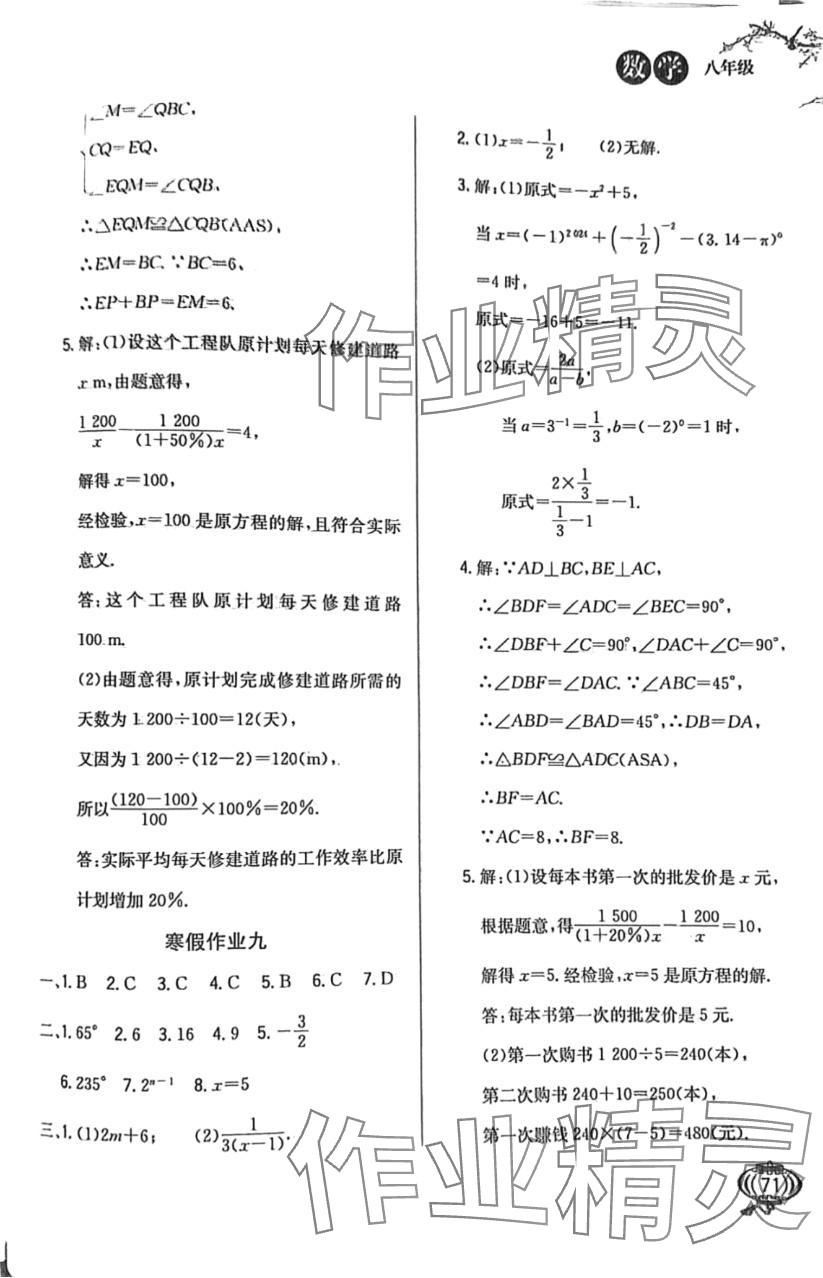 数学 八年级
∠M=∠QBC,
CQ=EQ,
∠EQM=∠CQB,
∴△EQM≌△CQB(AAS),
∴EM=BC.∵BC=6,
∴EP+BP=EM=6,
5.解:(1)设这个工程队原计划每天修建道路
x m,由题意得,
1 200/x-1 200/(1+50%)x=4,
解得x=100,
经检验,x=100是原方程的解,且符合实际
意义.
答:这个工程队原计划每天修建道路
100 m.
(2)由题意得,原计划完成修建道路所需的
天数为1 200÷100=12(天),
又因为1 200÷(12-2)=120(m),
所以(120-100)/100×100%=20%.
答:实际平均每天修建道路的工作效率比原
计划增加20%.
寒假作业九
一、1.B 2.C 3.C 4.C 5.B 6.C 7.D
二、1.65° 2.6 3.16 4.9 5.-3/2
6.235° 7.2ⁿ⁻¹ 8.x=5
三、1.(1)2m+6; (2)1/3(x-1).
2.(1)x=-1/2; (2)无解.
3.解:(1)原式=-x²+5,
当x=(-1)²⁰²⁴+(-1/2)⁻²-(3.14-π)⁰
=4时,
原式=-16+5=-11.
(2)原式=2a/(a-b),
当a=3⁻¹=1/3,b=(-2)⁰=1时,
原式=(2×1/3)/(1/3-1)=-1.
4.解:∵AD⊥BC,BE⊥AC,
∴∠BDF=∠ADC=∠BEC=90°,
∴∠DBF+∠C=90°,∠DAC+∠C=90°,
∴∠DBF=∠DAC.∵∠ABC=45°,
∴∠ABD=∠BAD=45°,∴DB=DA,
∴△BDF≌△ADC(ASA),
∴BF=AC.
∵AC=8,∴BF=8.
5.解:(1)设每本书第一次的批发价是x元,
根据题意,得1 500/(1+20%)x-1 200/x=10,
解得x=5.经检验,x=5是原方程的解.
答:每本书第一次的批发价是5元.
(2)第一次购书1 200÷5=240(本),
第二次购书240+10=250(本),
第一次赚钱240×(7-5)=480(元).
71
作业精灵
作业精灵